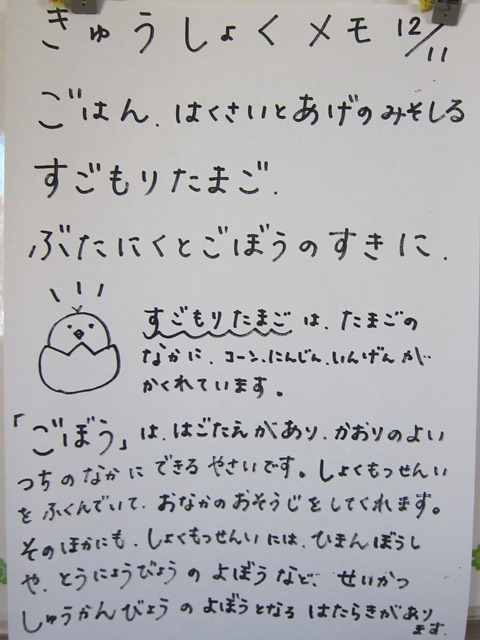 きゅうしょくメモ 12/11
ごはん、はくさいとあげのみそしる
すごもりたまご、
ぶたにくとごぼうのすきに、
すごもりたまご は、たまごの
なかに、コーン、にんじん、いんげんが
かくれています。
「ごぼう」は、はごたえがあり、かおりのよい
つちのなかにできるやさいです。しょくもっせんい
をふくんでいて、おなかのおそうじをしてくれます。
そのほかにも、しょくもっせんいには、ひまんぼうし
や、とうにょうびょうのよぼうなど、せいかつ
しゅうかんびょうのよぼうとなるはたらきがあり
ます。